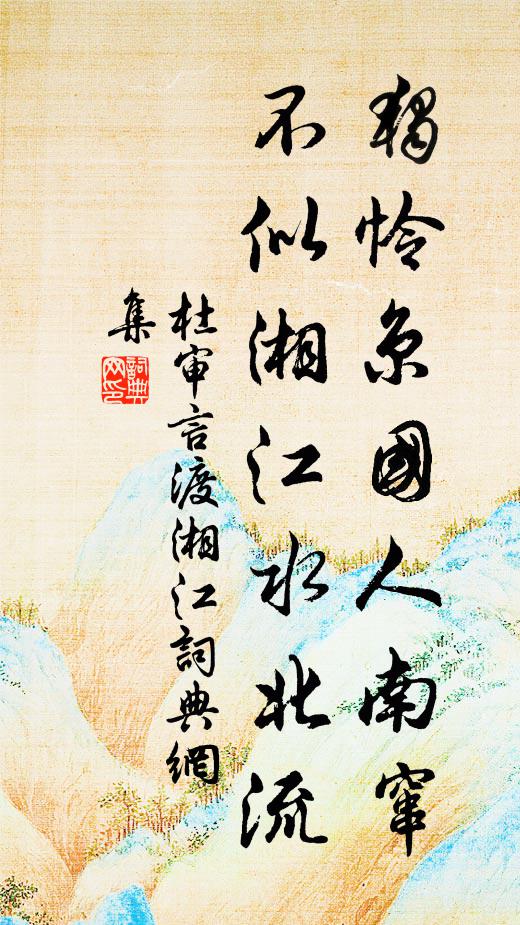 獨憐京國人南竄
不似湘江水北流
杜审言渡湘江詞典網
集
詞典
网印